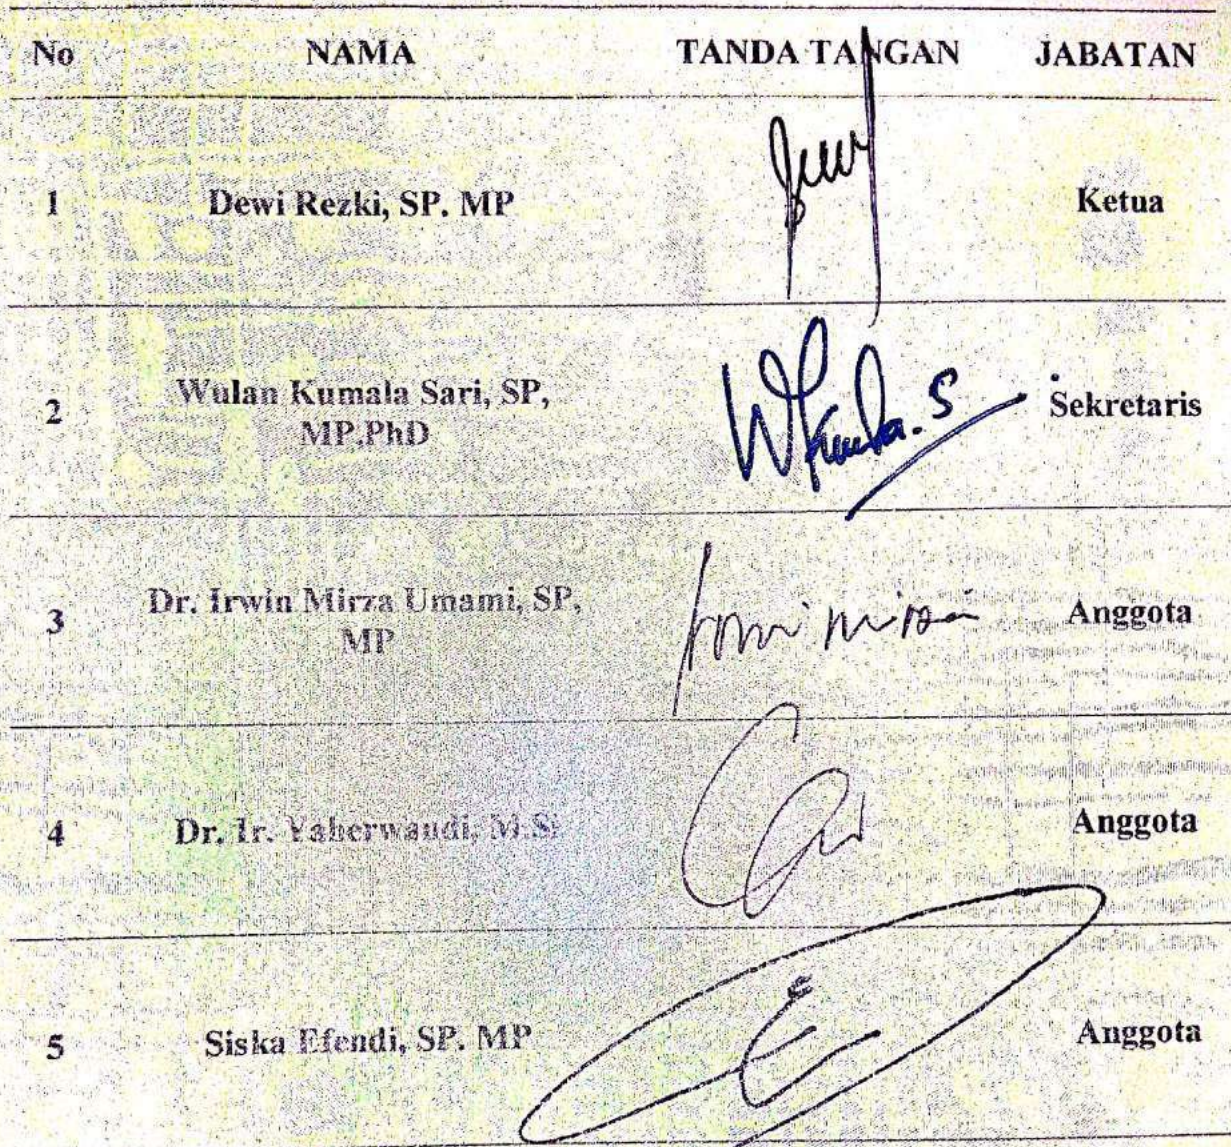 No NAMA TANDA TANGAN JABATAN
1 Dewi Rezki, SP. MP Ketua
2 Wulan Kumala Sari, SP, Sekretaris
MP.PhD
3 Dr. Irwin Mirza Umami, SP, Anggota
MP
4 Dr. Ir. Yaherwandi, M.Si Anggota
5 Siska Efendi, SP. MP Anggota